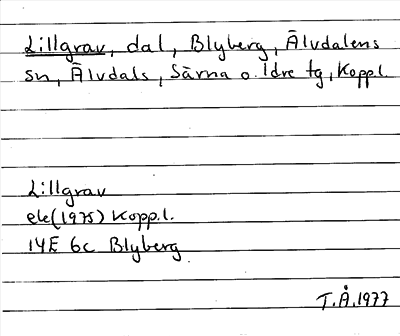 Lillgrav, dal, Blyberg, Älvdalens
sn, Älvdals, Särna o. Idre tg, Koppl.
Lillgrav
ek(1975) Koppl.
14E 6c Blyberg
T.Å.1977